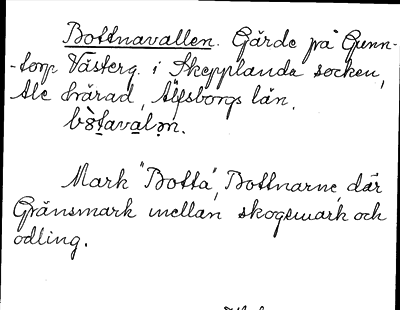 Bottnavallen. Gärde på Gunn-
-torp Västerg. i Skepplanda socken,
Ale härad, Älfsborgs län.
Mark "Botta", Bottnarne, där
Gränsmark mellan skogsmark och
odling.